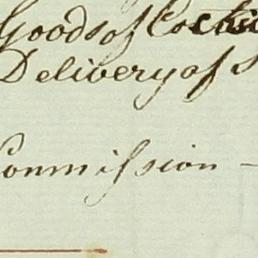 Goods of
Delivery of
Commission –